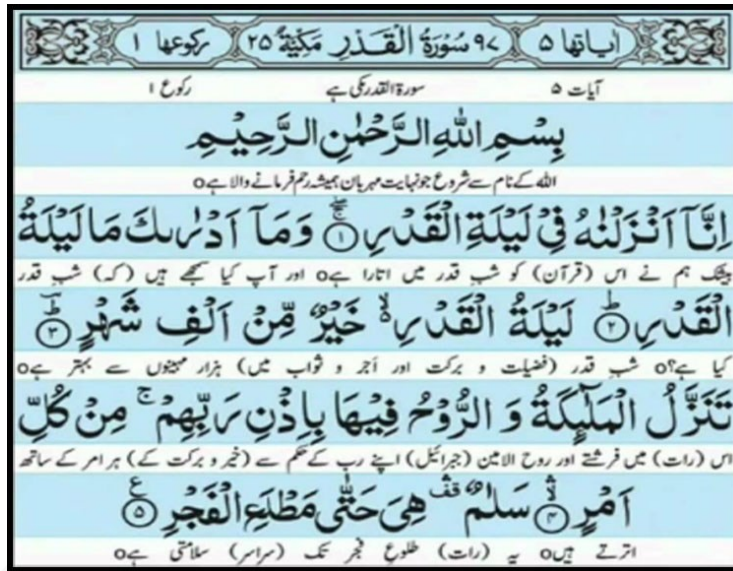 اٰیاتها ۵ ۹۷ سُوْرَةُ الْقَدْرِ مَکِّیَّةٌ ۲۵ رکوعها ۱
آیات ۵ سورۃ القدر مکی ہے رکوع ۱
بِسْمِ اللّٰهِ الرَّحْمٰنِ الرَّحِیْمِ
اللہ کے نام سے شروع جو نہایت مہربان ہمیشہ رحم فرمانے والا ہے o
اِنَّاۤ اَنْزَلْنٰهُ فِیْ لَیْلَةِ الْقَدْرِ ۚۖ۱ وَ مَاۤ اَدْرٰىكَ مَا لَیْلَةُ
بیشک ہم نے اس (قرآن) کو شبِ قدر میں اتارا ہے o اور آپ کیا سمجھے ہیں (کہ) شبِ قدر
الْقَدْرِ ؕ۲ لَیْلَةُ الْقَدْرِ ۙ۬ خَیْرٌ مِّنْ اَلْفِ شَهْرٍ ؕؔ۳
کیا ہے؟ o شبِ قدر (فضیلت و برکت اور اَجر و ثواب میں) ہزار مہینوں سے بہتر ہے o
تَنَزَّلُ الْمَلٰٓىِٕكَةُ وَ الرُّوْحُ فِیْهَا بِاِذْنِ رَبِّهِمْ ۚ مِنْ كُلِّ
اس (رات) میں فرشتے اور روح الامین (جبرائیل) اپنے رب کے حکم سے (خیر و برکت کے) ہر امر کے ساتھ
اَمْرٍ ۙۛ۴ سَلٰمٌ ۛ۫ قف هِیَ حَتّٰى مَطْلَعِ الْفَجْرِ ۵ ع
اترتے ہیں o یہ (رات) طلوعِ فجر تک (سراسر) سلامتی ہے o